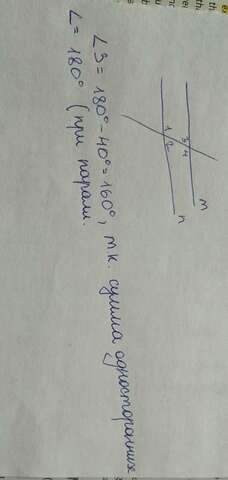 m
n
3 4
1 2
∠3 = 180° - 40° = 160°, т.к. сумма односторонних
∠ = 180° (при паралл.